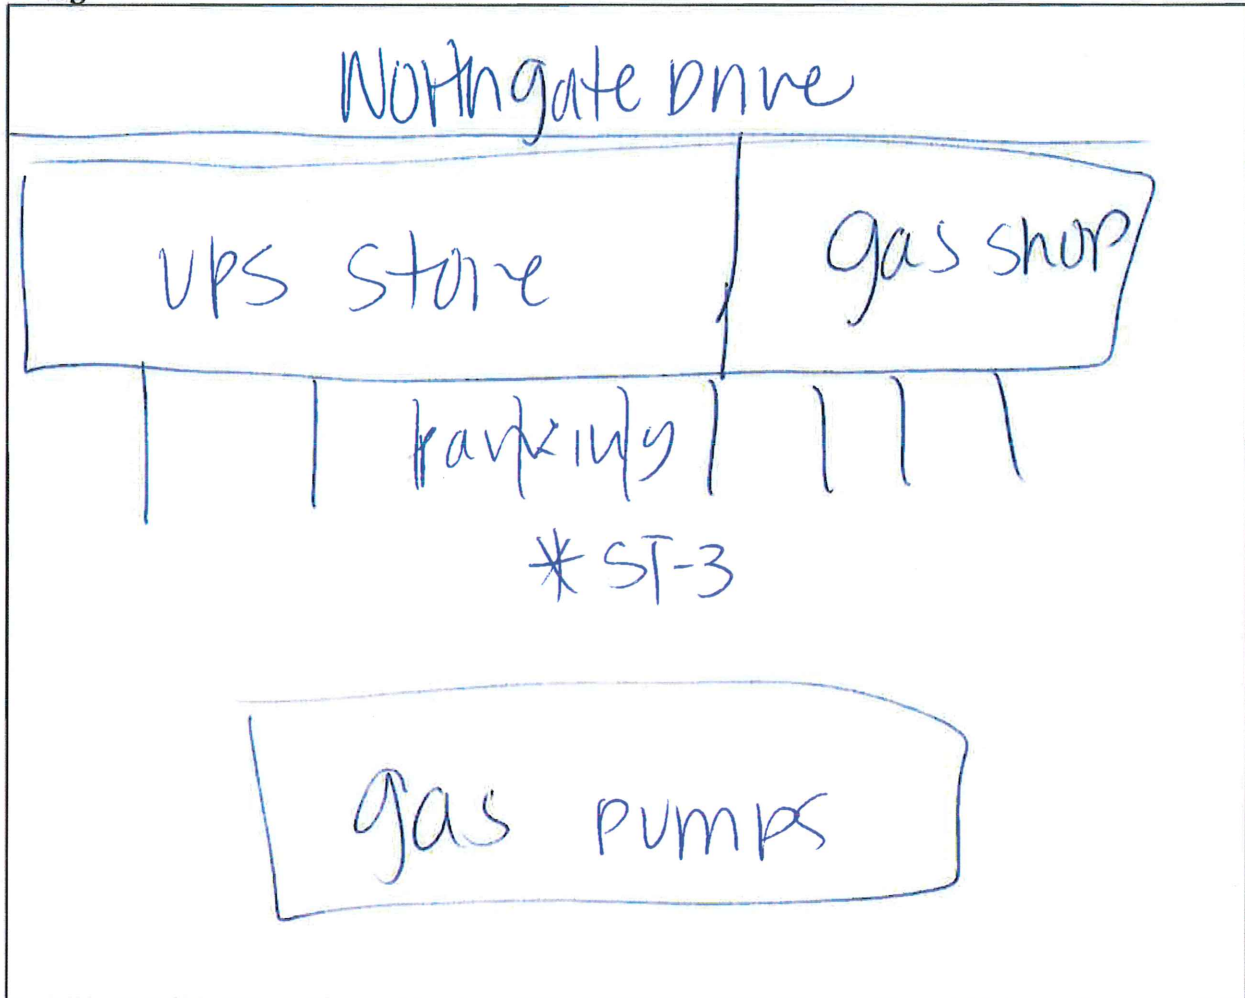 Northgate Drive
UPS store
gas shop
parking
* ST-3
gas pumps